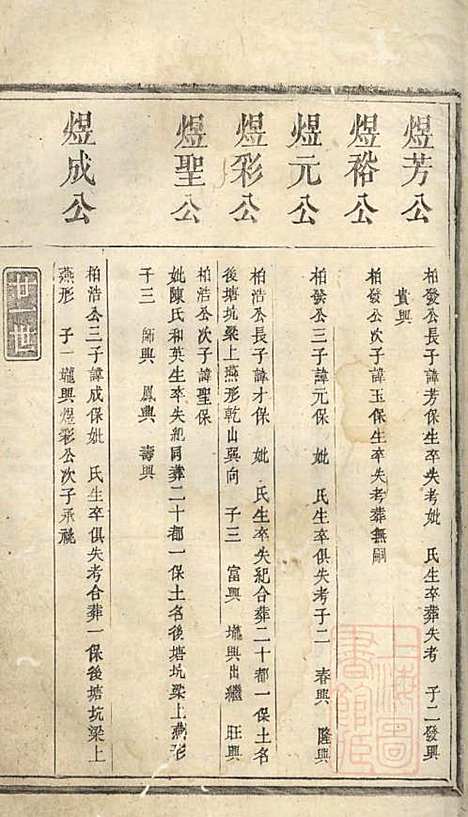 煜芳公
柏發公長子諱芳保生卒失考妣 氏生卒葬失考 子二發興
貴興
煜裕公
柏發公次子諱玉保生卒失考葬無嗣
煜元公
柏發公三子諱元保 妣 氏生卒俱失考子二 春興 隆興
煜彩公
柏浩公長子諱才保 妣 氏生卒失紀合葬二十都一保土名
後塘坑梁上燕形乾山巽向 子三 富興 瓏興出繼 旺興
煜聖公
柏浩公次子諱聖保
妣陳氏和英生卒失紀同葬二十都一保土名後塘坑梁上燕形
子三 師興 鳳興 壽興
煜成公
柏浩公三子諱成保妣 氏生卒俱失考合葬一保後塘坑梁上
燕形 子一瓏興煜彩公次子承祧
廿一世
上海圖書館藏